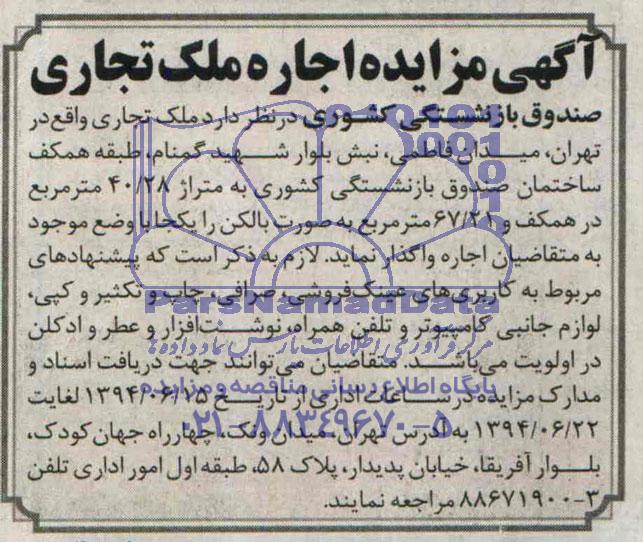 آگهی مزایده اجاره ملک تجاری
صندوق بازنشستگی کشوری در نظر دارد ملک تجاری واقع در
تهران، میدان فاطمی، نبش بلوار شهید گمنام، طبقه همکف
ساختمان صندوق بازنشستگی کشوری به متراژ ۴۰/۲۸ مترمربع
در همکف و ۶۷/۲۱ مترمربع به صورت بالکن را یکجا با وضع موجود
به متقاضیان اجاره واگذار نماید. لازم به ذکر است که پیشنهادهای
مربوط به کاربری‌های عینک‌فروشی، صرافی، چاپ و تکثیر و کپی،
لوازم جانبی کامپیوتر و تلفن همراه، نوشت‌افزار و عطر و ادکلن
در اولویت می‌باشد. متقاضیان می‌توانند جهت دریافت اسناد و
مدارک مزایده در ساعات اداری از تاریخ ۱۳۹۴/۰۶/۱۵ لغایت
۱۳۹۴/۰۶/۲۲ به آدرس تهران، میدان ونک، چهارراه جهان کودک،
بلوار آفریقا، خیابان پدیدار، پلاک ۵۸، طبقه اول امور اداری تلفن
۳-۸۸۶۷۱۹۰۰ مراجعه نمایند.
ParsNamadData
مرکز فرآوری اطلاعات پارس نماد داده‌ها
پایگاه اطلاع رسانی مناقصه و مزایده
۰۲۱-۸۸۳۴۹۶۷۰-۵